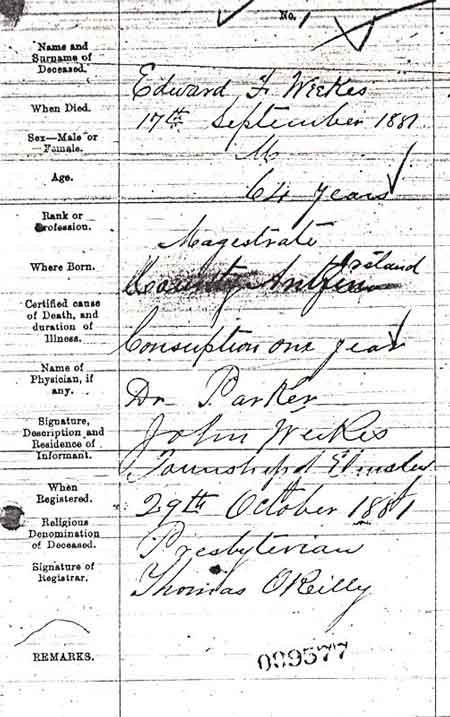 No. 1
Name and Surname of Deceased. Edward F. Weekes
When Died. 17th September 1881
Sex—Male or Female. M
Age. 64 years
Rank or Profession. Magestrate
Where Born. County Antrim Ireland
Certified cause of Death, and duration of Illness. Consuption one year
Name of Physician, if any. Dr Parker
Signature, Description and Residence of Informant. John Weekes
Township of Elmsley
When Registered. 29th October 1881
Religious Denomination of Deceased. Presbyterian
Signature of Registrar. Thomas OReilly
REMARKS.
009577